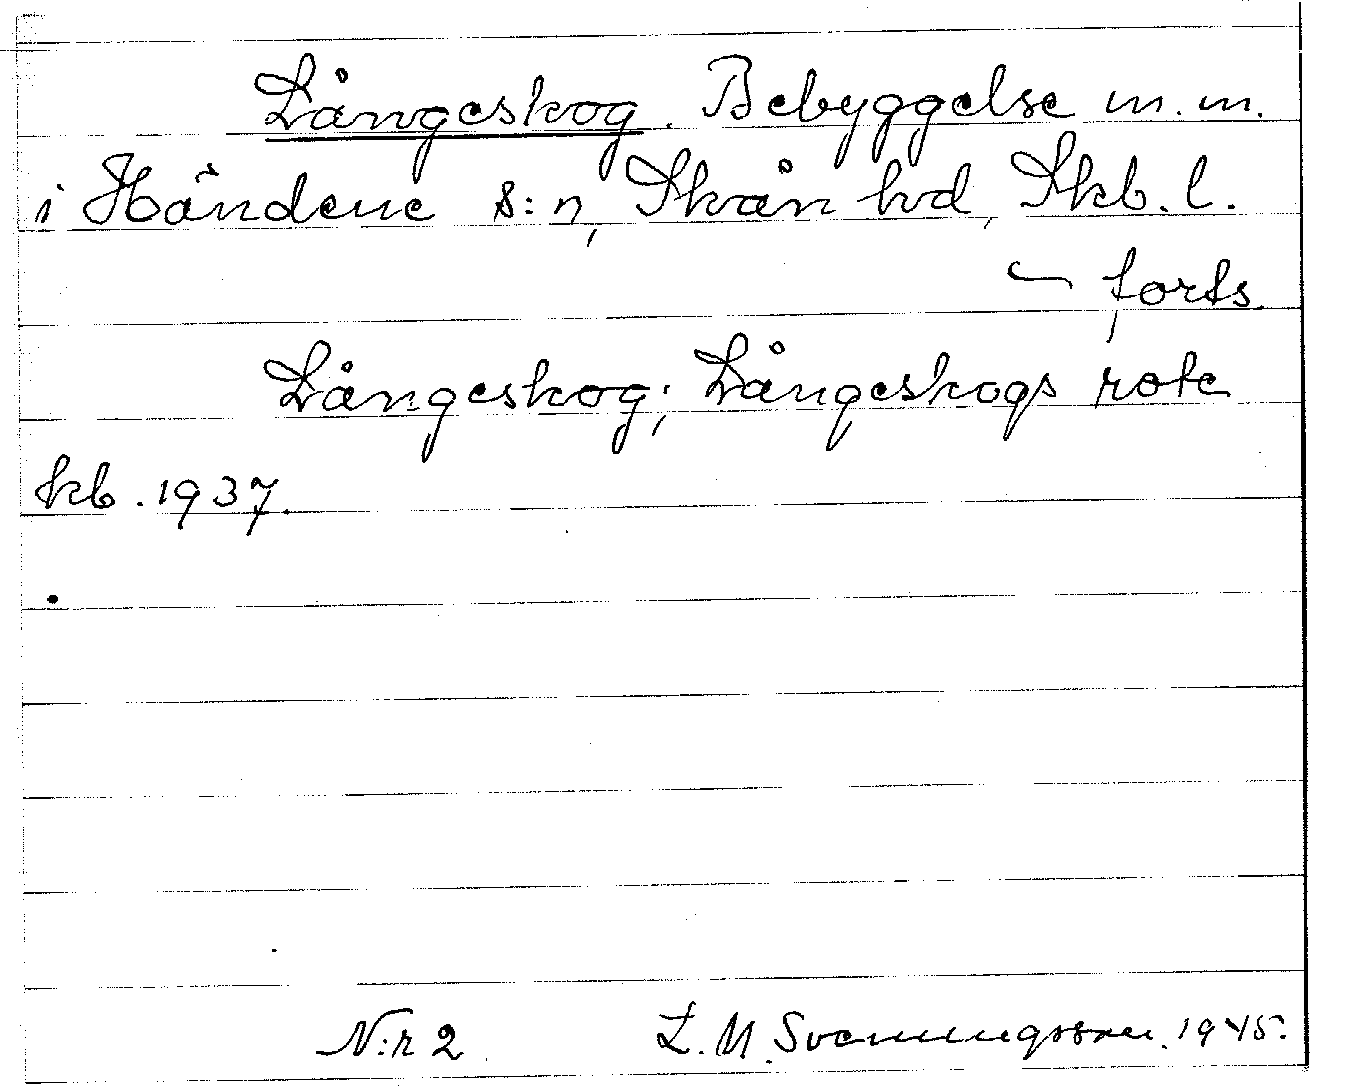 Långeskog. Bebyggelse m. m.
i Händene s:n, Skån hd, Skb. l.
forts
Långeskog; Långeskogs rote
kb. 1937.
N:r 2 L. M. Svenningsson. 1945.